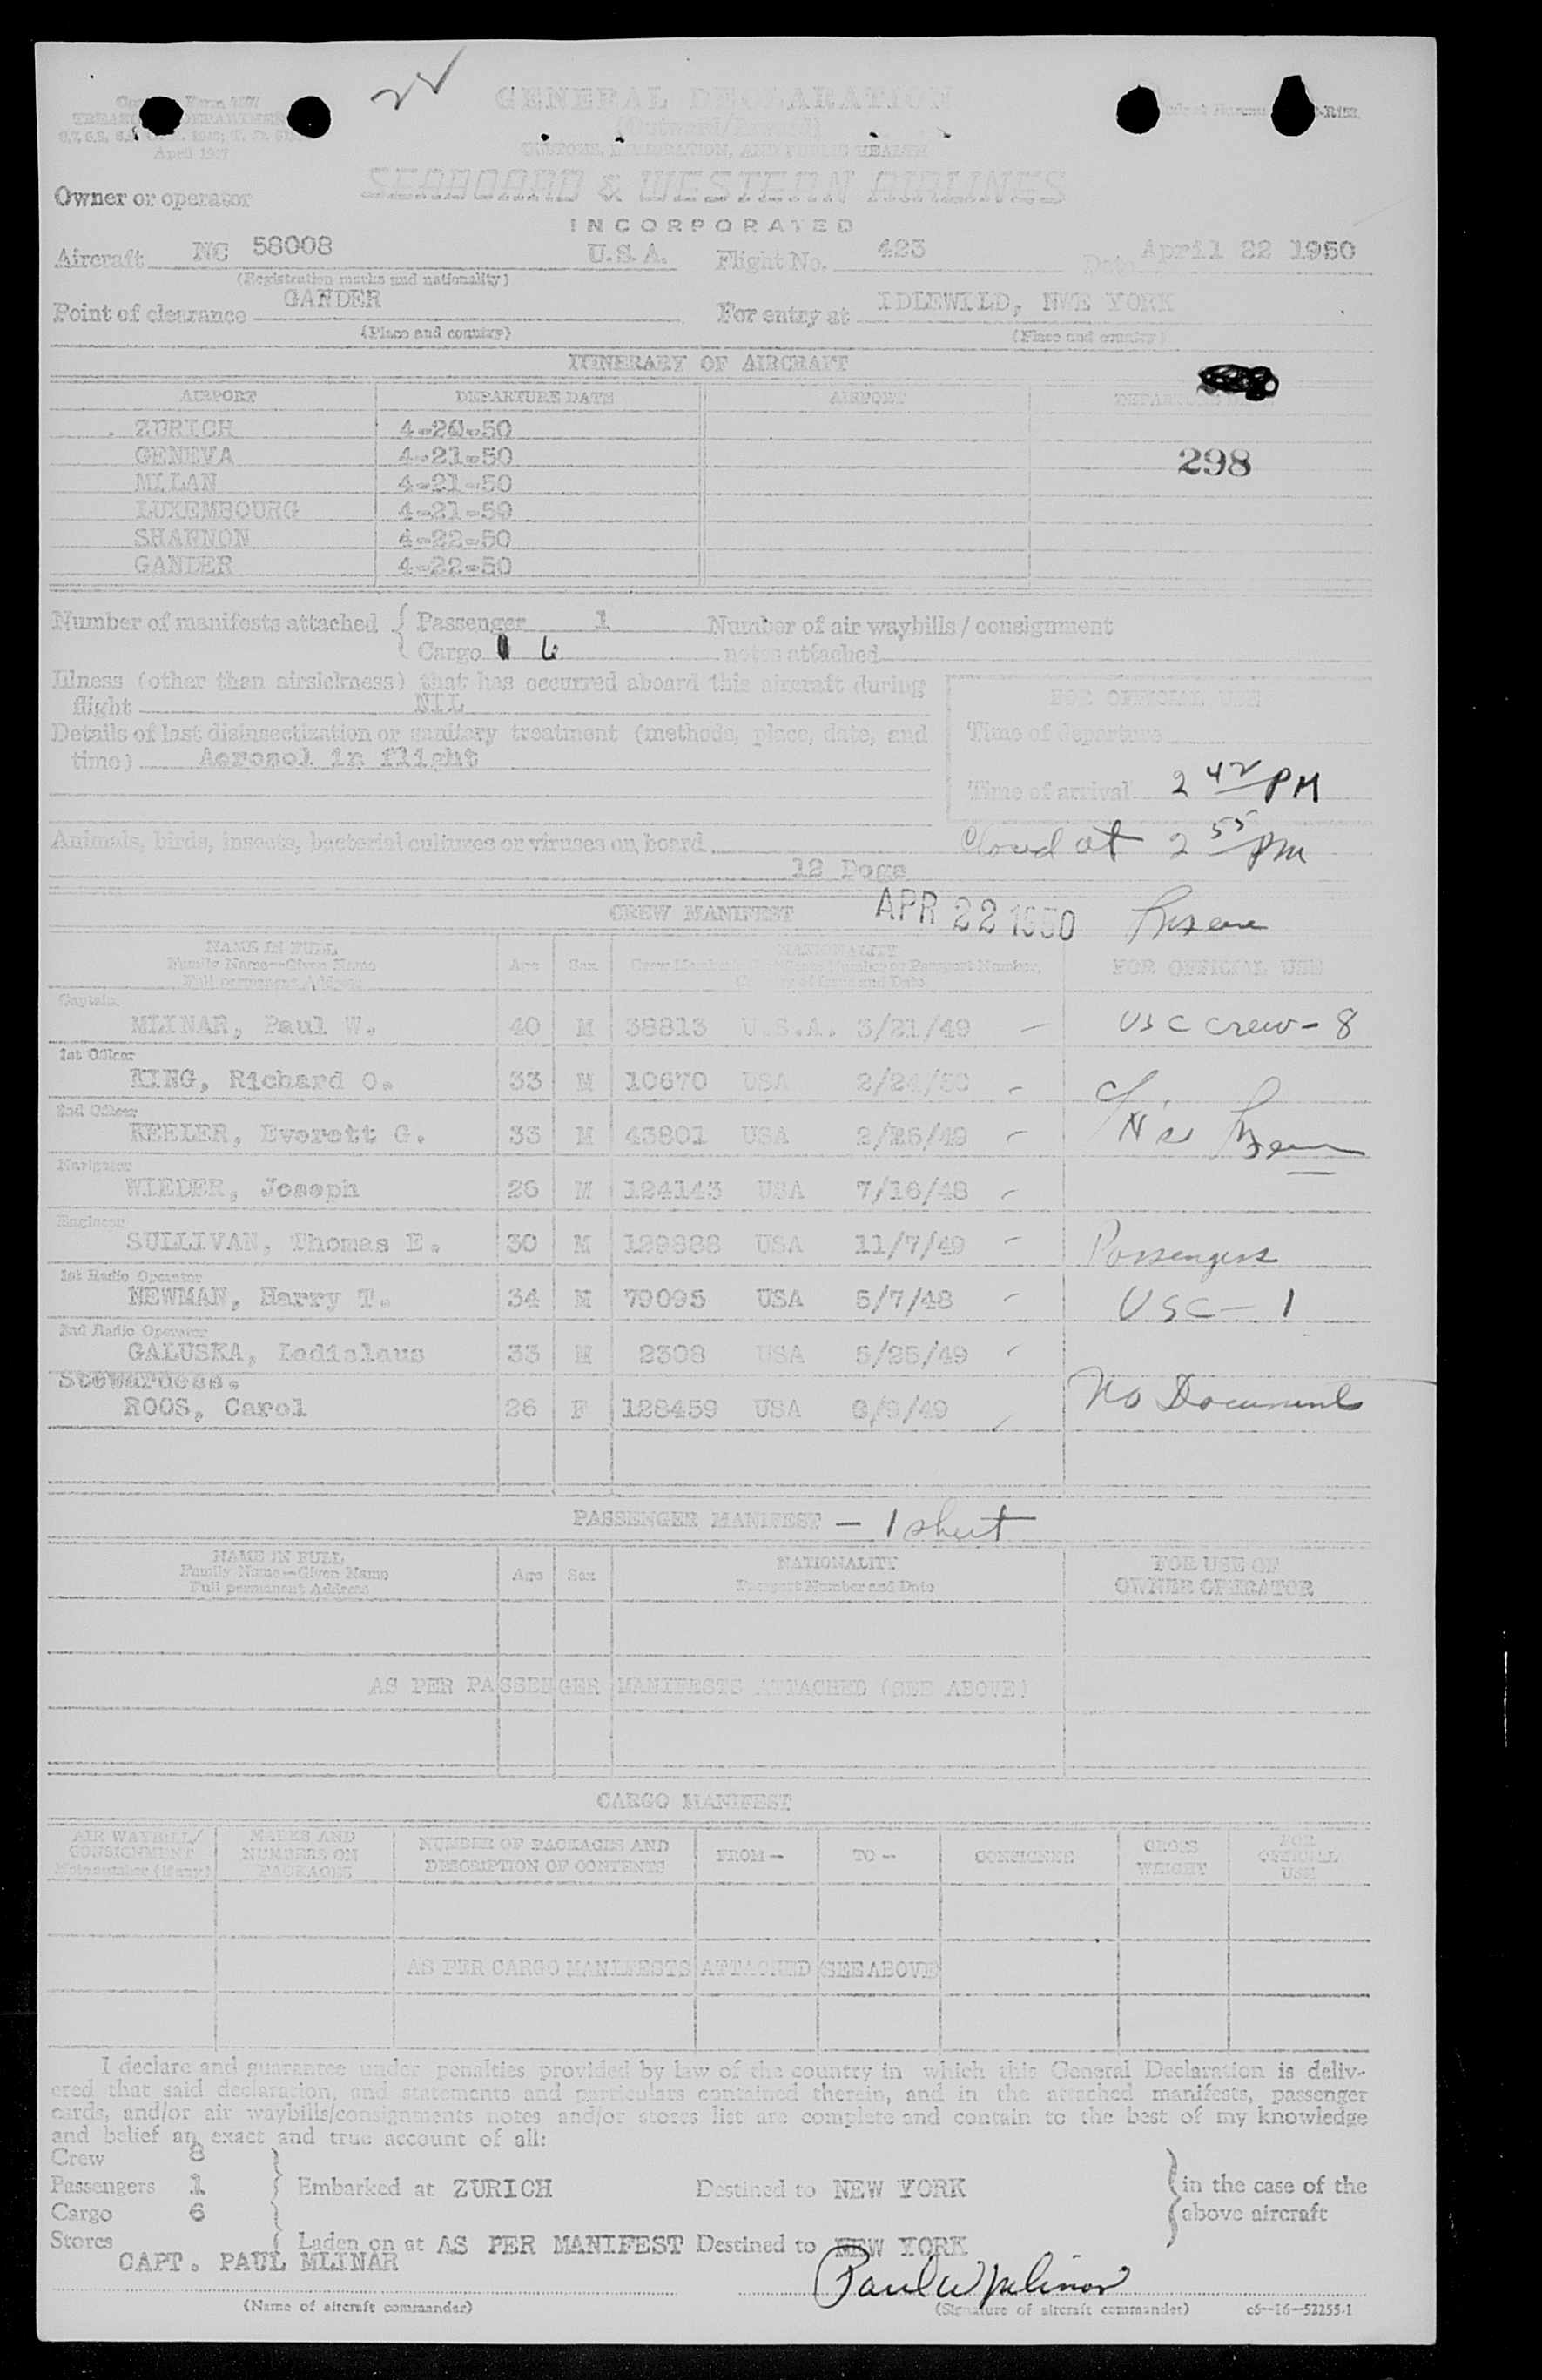 GENERAL DECLARATION
TREASURY DEPARTMENT
April 1947
CUSTOMS, IMMIGRATION, AND PUBLIC HEALTH
Owner or operator SEABOARD & WESTERN AIRLINES
INCORPORATED
Aircraft NC 58008 U.S.A. Flight No. 423 Date April 22 1950
(Registration marks and nationality)
Point of clearance GANDER For entry at IDLEWILD, NWE YORK
(Place and country) (Place and country)
ITINERARY OF AIRCRAFT
AIRPORT DEPARTURE DATE AIRPORT
ZURICH 4-20-50
GENEVA 4-21-50 298
MILAN 4-21-50
LUXEMBOURG 4-21-50
SHANNON 4-22-50
GANDER 4-22-50
Number of manifests attached { Passenger 1 Number of air waybills / consignment
Cargo 6 notes attached
Illness (other than airsickness) that has occurred aboard this aircraft during
flight NIL
FOR OFFICIAL USE
Details of last disinsectization or sanitary treatment (methods, place, date, and
time) Aerosol in flight
Time of departure
Time of arrival 2 42 PM
Animals, birds, insects, bacterial cultures or viruses on board
Closed at 2 55 PM
12 Dogs
CREW MANIFEST APR 22 1950
NAME IN FULL NATIONALITY
Family Name—Given Name Age Sex FOR OFFICIAL USE
Full permanent Address
Captain
MLINAR, Paul W. 40 M 38813 U.S.A. 3/21/49 — USC crew - 8
1st Officer
KING, Richard O. 33 M 10670 USA 2/24/50
2nd Officer
KEELER, Everett G. 33 M 43801 USA
Navigator
WIEDER, Joseph 26 M 124143 USA 7/16/48
Engineer
SULLIVAN, Thomas E. 30 M 129888 USA 11/7/49 Passengers
1st Radio Operator
NEWMAN, Harry T. 34 M 79095 USA 5/7/48 USC - 1
2nd Radio Operator
GALUSKA, Ladislaus 33 M 2308 USA 5/25/49
Stewardess.
ROOS, Carol 26 F 128459 USA No Documents
PASSENGER MANIFEST — 1 sheet
NAME IN FULL NATIONALITY FOR USE OF
Family Name—Given Name Age Sex Passport Number and Date OWNER OPERATOR
Full permanent Address
AS PER PASSENGER MANIFESTS ATTACHED (SEE ABOVE)
CARGO MANIFEST
AIR WAYBILL/ MARKS AND NUMBER OF PACKAGES AND GROSS FOR
CONSIGNMENT NUMBERS ON DESCRIPTION OF CONTENTS FROM— TO— CONSIGNEE WEIGHT OFFICIAL
Note number (if any) PACKAGES USE
AS PER CARGO MANIFESTS ATTACHED (SEE ABOVE)
I declare and guarantee under penalties provided by law of the country in which this General Declaration is deliv-
ered that said declaration, and statements and particulars contained therein, and in the attached manifests, passenger
cards, and/or air waybills/consignments notes and/or stores list are complete and contain to the best of my knowledge
and belief an exact and true account of all:
Crew 8
Passengers 1 Embarked at ZURICH Destined to NEW YORK in the case of the
Cargo 6 above aircraft
Stores Laden on at AS PER MANIFEST Destined to NEW YORK
CAPT. PAUL MLINAR Paul W Mlinar
(Name of aircraft commander) (Signature of aircraft commander) c6—16—52255-1